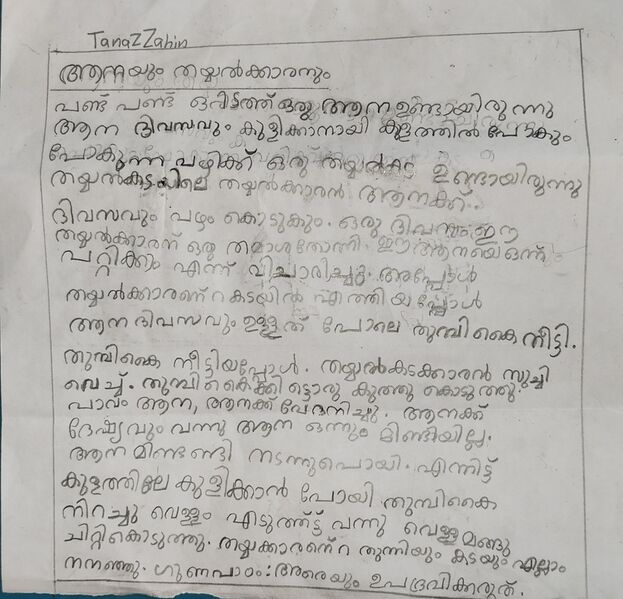 Tanaz Zahin
ആനയും തയ്യൽക്കാരനും
പണ്ട് പണ്ട് ഒരിടത്ത് ഒരു ആന ഉണ്ടായിരുന്നു
ആന ദിവസവും കുളിക്കാനായി കുളത്തിൽ പോകും
പോകുന്ന വഴിക്ക് ഒരു തയ്യൽകട ഉണ്ടായിരുന്നു
തയ്യൽകടയിലെ തയ്യൽക്കാരൻ ആനക്ക്.
ദിവസവും പഴം കൊടുകും. ഒരു ദിവസം ഈ
തയ്യൽക്കാരന് ഒരു തമാശ തോന്നി. ഈ ആനയെ ഒന്ന്
പറ്റിക്കാം എന്ന് വിചാരിച്ചു. അപ്പോൾ
തയ്യൽക്കാരണ്റ കടയിൽ എത്തിയപ്പോൾ
ആന ദിവസവും ഉള്ളത് പോലെ തുമ്പികൈ നീട്ടി.
തുമ്പികൈ നീട്ടിയപ്പോൾ. തയ്യൽകടക്കാരൻ സൂച്ചി
വെച്ച്. തുമ്പികൈക്കിട്ടൊരു കുത്തു കൊടുത്തു.
പാവം ആന, ആനക്ക് വേദനിച്ചു. ആനക്ക്
ദേഷ്യവും വന്നു ആന ഒന്നും മിണ്ടിയില്ല.
ആന മിണ്ടണ്ടി നടന്നുപൊയി. എന്നിട്ട്
കുളത്തിലേ കുളിക്കാൻ പോയി തുമ്പികൈ
നിറച്ചു വെള്ളം എടുത്ത്ട്ട് വന്നു വെള്ളമങ്ങു
ചിറ്റികൊടുത്തു. തയ്യക്കാരൻെറ തുന്നിയും കടയും എല്ലാം
നനഞ്ഞു. ഗുണപാഠം: ആരെയും ഉപദ്രവിക്കരുത്.